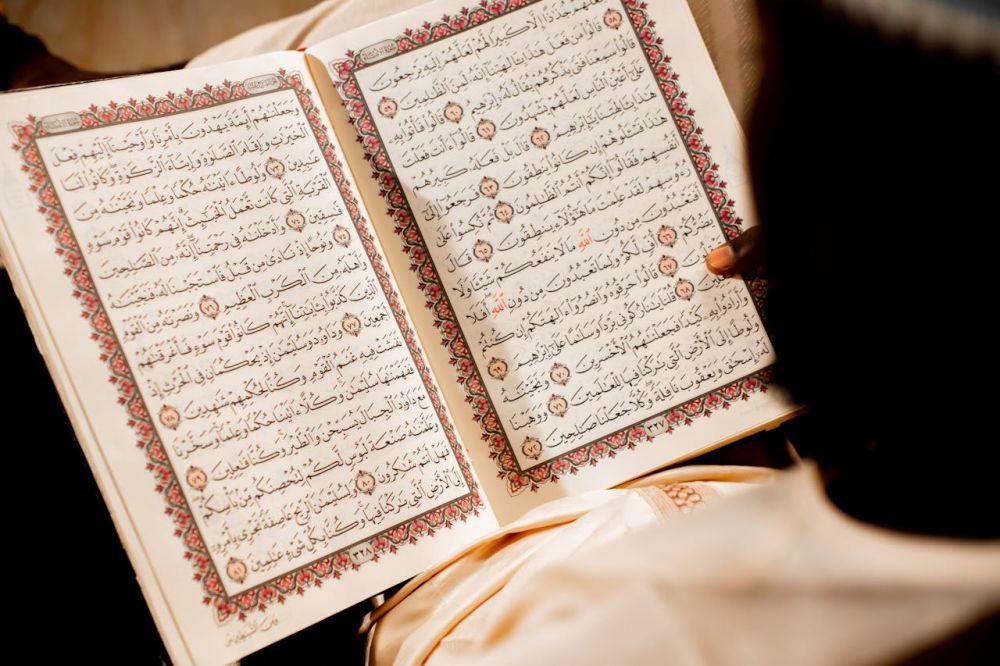 جُذَٰذًا إِلَّا كَبِيرًا لَّهُمْ لَعَلَّهُمْ إِلَيْهِ يَرْجِعُونَ
٥٨ قَالُوا۟ مَن فَعَلَ هَٰذَا بِـَٔالِهَتِنَآ إِنَّهُۥ لَمِنَ ٱلظَّٰلِمِينَ ٥٩
قَالُوا۟ سَمِعْنَا فَتًى يَذْكُرُهُمْ يُقَالُ لَهُۥٓ إِبْرَٰهِيمُ ٦٠ قَالُوا۟ فَأْتُوا۟ بِهِۦ
عَلَىٰٓ أَعْيُنِ ٱلنَّاسِ لَعَلَّهُمْ يَشْهَدُونَ ٦١ قَالُوٓا۟ ءَأَنتَ فَعَلْتَ
هَٰذَا بِـَٔالِهَتِنَا يَٰٓإِبْرَٰهِيمُ ٦٢ قَالَ بَلْ فَعَلَهُۥ كَبِيرُهُمْ
هَٰذَا فَسْـَٔلُوهُمْ إِن كَانُوا۟ يَنطِقُونَ ٦٣ فَرَجَعُوٓا۟ إِلَىٰٓ
أَنفُسِهِمْ فَقَالُوٓا۟ إِنَّكُمْ أَنتُمُ ٱلظَّٰلِمُونَ ٦٤ ثُمَّ نُكِسُوا۟ عَلَىٰ
رُءُوسِهِمْ لَقَدْ عَلِمْتَ مَا هَٰٓؤُلَآءِ يَنطِقُونَ ٦٥ قَالَ
أَفَتَعْبُدُونَ مِن دُونِ ٱللَّهِ مَا لَا يَنفَعُكُمْ شَيْـًٔا وَلَا
يَضُرُّكُمْ ٦٦ أُفٍّ لَّكُمْ وَلِمَا تَعْبُدُونَ مِن دُونِ ٱللَّهِ أَفَلَا
٦٧ قَالُوا۟ حَرِّقُوهُ وَٱنصُرُوٓا۟ ءَالِهَتَكُمْ إِن كُنتُمْ
٦٨ قُلْنَا يَٰنَارُ كُونِى بَرْدًا وَسَلَٰمًا عَلَىٰٓ إِبْرَٰهِيمَ ٦٩
وَأَرَادُوا۟ بِهِۦ كَيْدًا فَجَعَلْنَٰهُمُ ٱلْأَخْسَرِينَ ٧٠ وَنَجَّيْنَٰهُ
وَلُوطًا إِلَى ٱلْأَرْضِ ٱلَّتِى بَٰرَكْنَا فِيهَا لِلْعَٰلَمِينَ ٧١ وَوَهَبْنَا
لَهُۥٓ إِسْحَٰقَ وَيَعْقُوبَ نَافِلَةً وَكُلًّا جَعَلْنَا صَٰلِحِينَ ٧٢
٣٢٧
وَجَعَلْنَٰهُمْ أَئِمَّةً يَهْدُونَ بِأَمْرِنَا وَأَوْحَيْنَآ إِلَيْهِمْ فِعْلَ
ٱلْخَيْرَٰتِ وَإِقَامَ ٱلصَّلَوٰةِ وَإِيتَآءَ ٱلزَّكَوٰةِ وَكَانُوا۟ لَنَا
عَٰبِدِينَ ٧٣ وَلُوطًا ءَاتَيْنَٰهُ حُكْمًا وَعِلْمًا وَنَجَّيْنَٰهُ مِنَ
ٱلْقَرْيَةِ ٱلَّتِى كَانَت تَّعْمَلُ ٱلْخَبَٰٓئِثَ إِنَّهُمْ كَانُوا۟ قَوْمَ سَوْءٍ
فَٰسِقِينَ ٧٤ وَأَدْخَلْنَٰهُ فِى رَحْمَتِنَآ إِنَّهُۥ مِنَ ٱلصَّٰلِحِينَ
٧٥ وَنُوحًا إِذْ نَادَىٰ مِن قَبْلُ فَٱسْتَجَبْنَا لَهُۥ فَنَجَّيْنَٰهُ
وَأَهْلَهُۥ مِنَ ٱلْكَرْبِ ٱلْعَظِيمِ ٧٦ وَنَصَرْنَٰهُ مِنَ ٱلْقَوْمِ
ٱلَّذِينَ كَذَّبُوا۟ بِـَٔايَٰتِنَآ إِنَّهُمْ كَانُوا۟ قَوْمَ سَوْءٍ فَأَغْرَقْنَٰهُمْ
أَجْمَعِينَ ٧٧ وَدَاوُۥدَ وَسُلَيْمَٰنَ إِذْ يَحْكُمَانِ فِى ٱلْحَرْثِ إِذْ
نَفَشَتْ فِيهِ غَنَمُ ٱلْقَوْمِ وَكُنَّا لِحُكْمِهِمْ شَٰهِدِينَ ٧٨
فَفَهَّمْنَٰهَا سُلَيْمَٰنَ وَكُلًّا ءَاتَيْنَا حُكْمًا وَعِلْمًا وَسَخَّرْنَا
مَعَ دَاوُۥدَ ٱلْجِبَالَ يُسَبِّحْنَ وَٱلطَّيْرَ وَكُنَّا فَٰعِلِينَ ٧٩
وَعَلَّمْنَٰهُ صَنْعَةَ لَبُوسٍ لَّكُمْ لِتُحْصِنَكُم مِّنۢ بَأْسِكُمْ
فَهَلْ أَنتُمْ شَٰكِرُونَ ٨٠ وَلِسُلَيْمَٰنَ ٱلرِّيحَ عَاصِفَةً تَجْرِى بِأَمْرِهِۦٓ
إِلَى ٱلْأَرْضِ ٱلَّتِى بَٰرَكْنَا فِيهَا وَكُنَّا بِكُلِّ شَىْءٍ عَٰلِمِينَ ٨١
٣٢٨
وَمِنَ ٱلشَّيَٰطِينِ